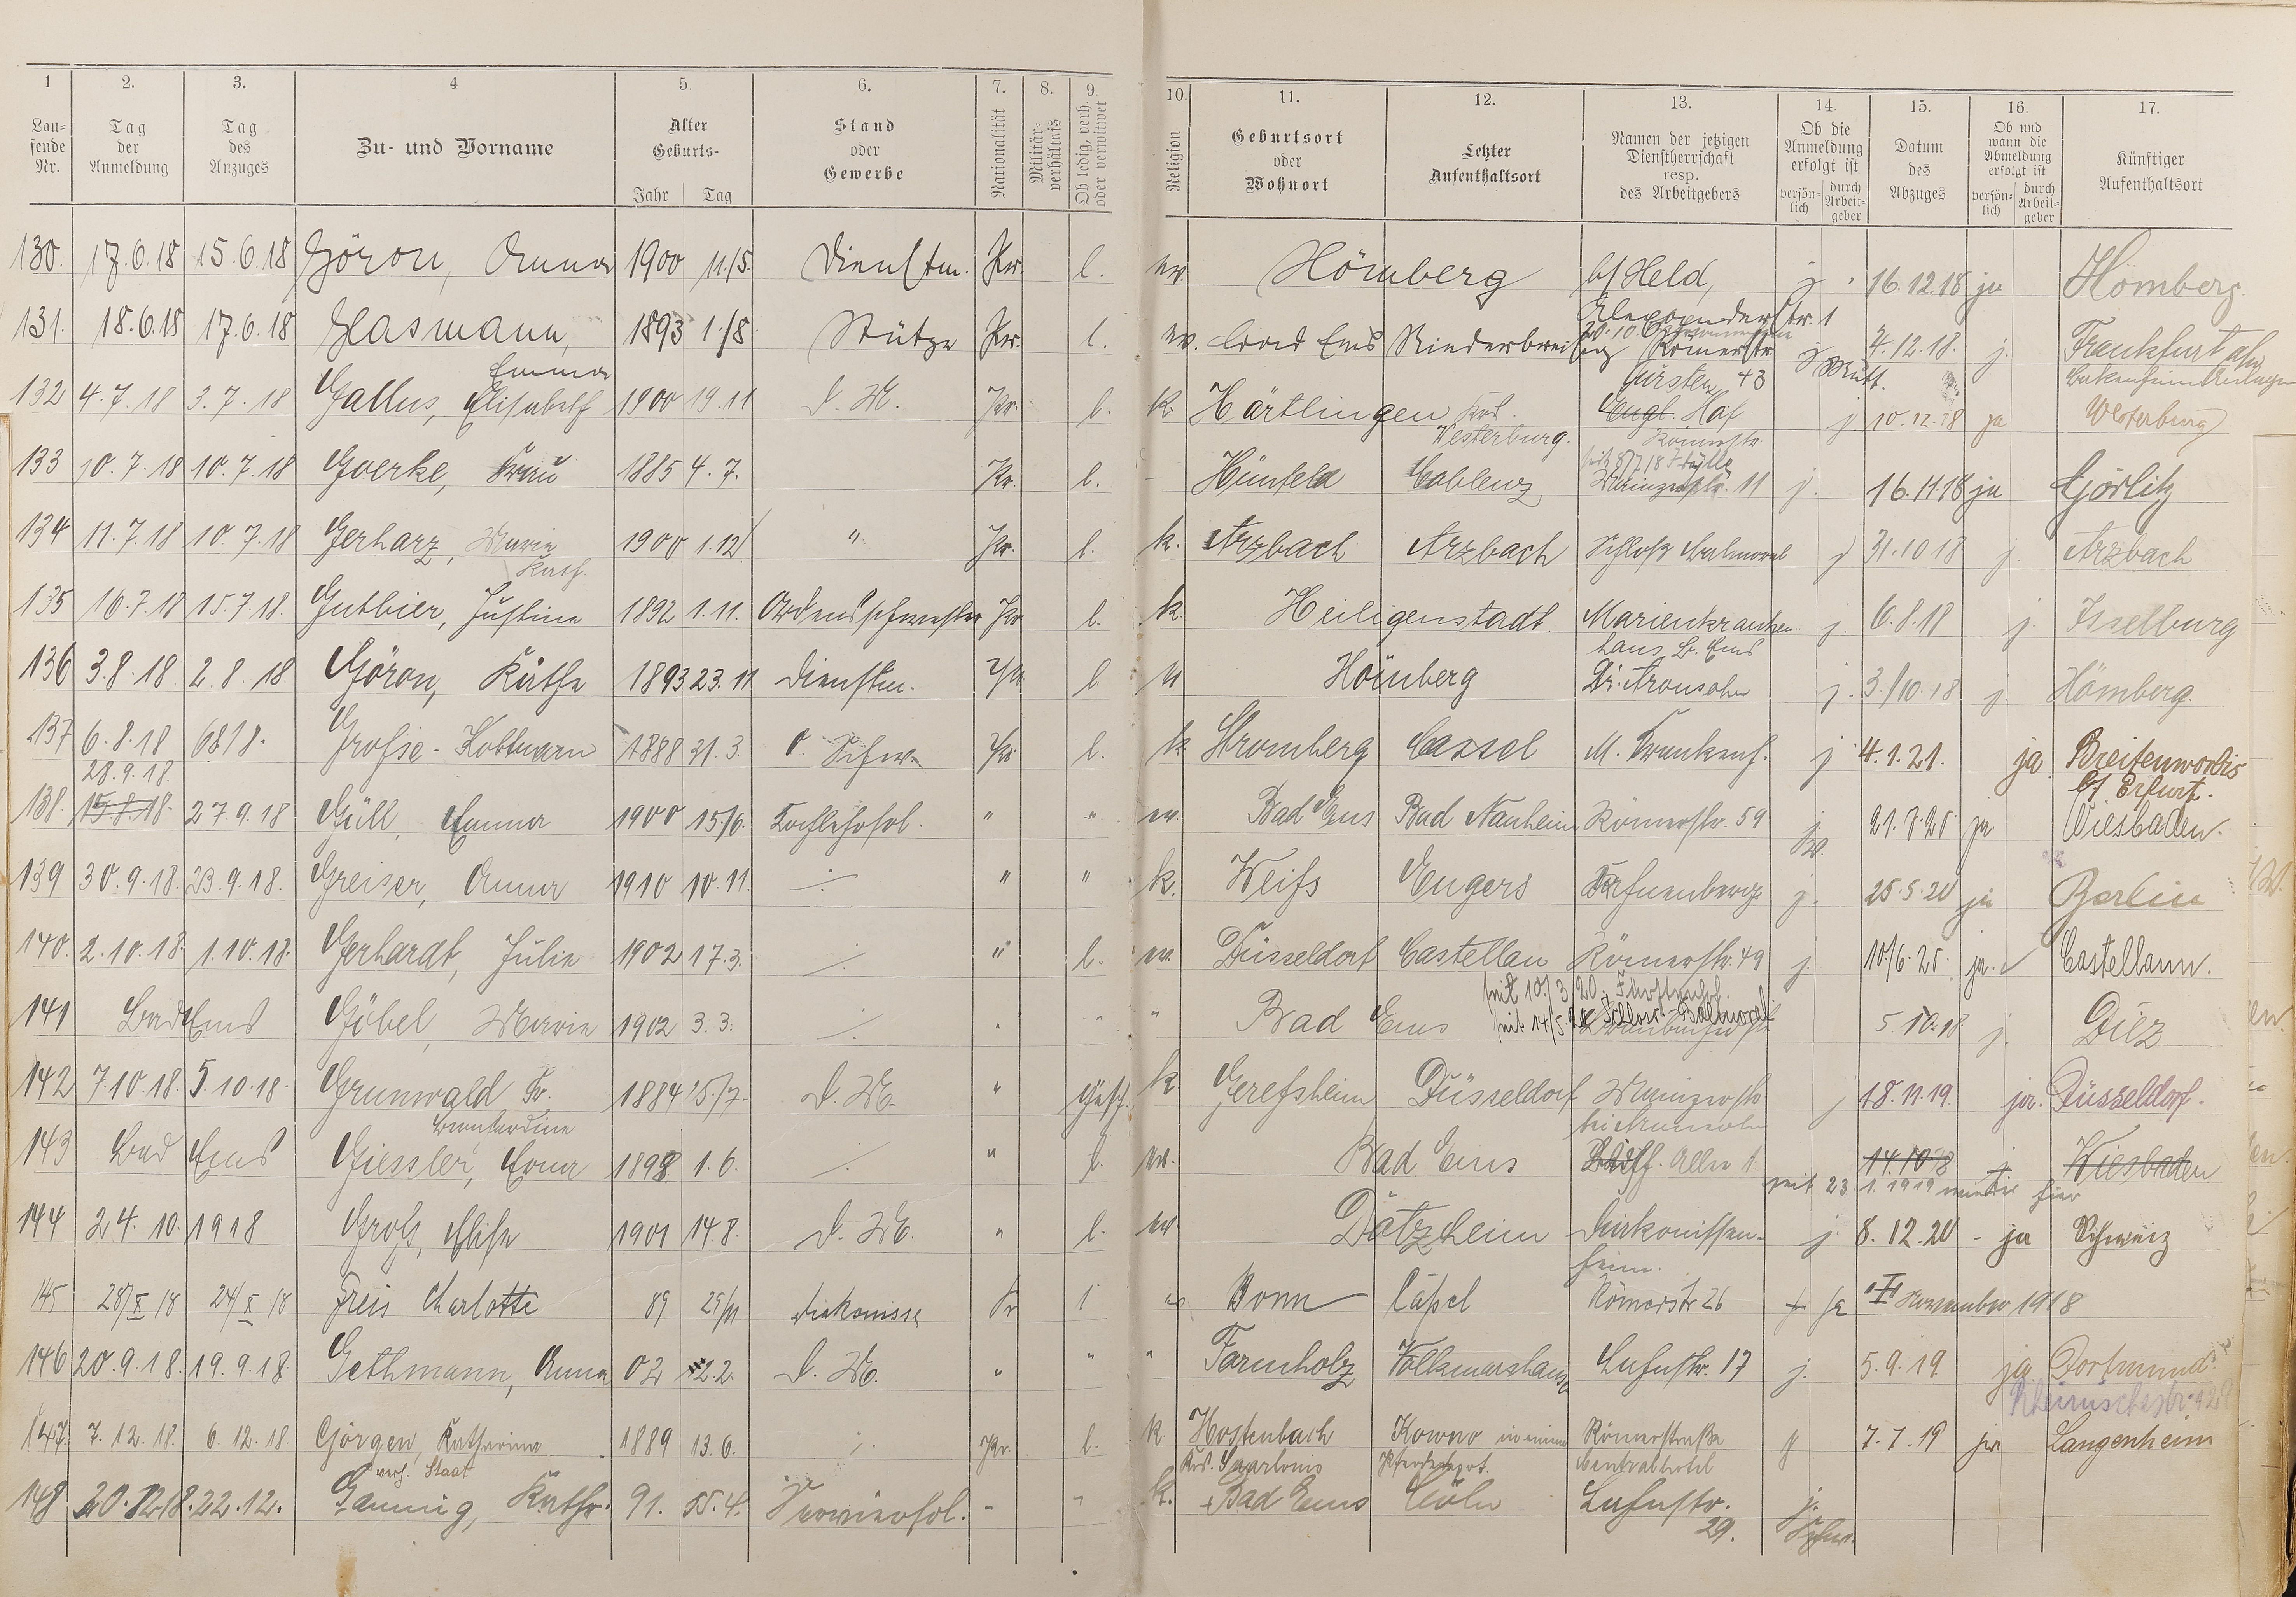 1 2. 3. 4 5. 6. 7. 8. 9. 10. 11. 12. 13. 14. 15. 16. 17.
Laufende Nr. Tag der Anmeldung Tag des Anzuges Zu- und Vorname Alter Geburts- Jahr Tag Stand oder Gewerbe Nationalität Militär-verhältnis Ob ledig, verh. oder verwitwet Religion Geburtsort oder Wohnort Letzter Aufenthaltsort Namen der jetzigen Dienstherrschaft resp. des Arbeitgebers Ob die Anmeldung erfolgt ist persön-lich durch Arbeit-geber Datum des Abzuges Ob und wann die Abmeldung erfolgt ist persön-lich durch Arbeit-geber Künftiger Aufenthaltsort
130. 17.6.18 15.6.18 Göron, Anna 1900 11/5. Dienstm. Pr. l. ev. Hömberg b/ Held, j. 16.12.18 ja Hömberg.
Alexanderstr. 1
131. 18.6.18 17.6.18 Glasmann, 1893 1./8. Stütze Pr. l. ev. Bad Ems Niederbreisig Römerstr. j 4.12.18. j. Frankfurt a/m
Emma 43
132 4.7.18 3.7.18 Gallus, Elisabeth 1900 19.11 D. M. Pr. l. K Härtlingen Krs. Engl. Hof j. 10.12.18 ja Westerburg
Westerburg. Römerstr.
133 10.7.18 10.7.18 Goerke, Frau 1885 4.7. Pr. l. - Hünfeld Coblenz Mainzerstr. 11 j. 16.11.18 ja Görlitz
134 11.7.18 10.7.18 Gerharz, Maria 1900 1.12 " Pr. l. k. Arzbach Arzbach Schloß Balmoral j 31.10 18 j. Arzbach
Kath.
135 16.7.18 15.7.18. Gutbier, Justine 1892 1.11. Ordensschwester Pr l. k. Heiligenstadt. Marienkranken- j. 6.8.18 j. Isselburg
haus B. Ems
136 3.8.18. 2.8.18. Göron, Käthe 1893 23.11 Dienstm. Pr. l. Hömberg Dr. Aronsohn j. 3./10.18 j. Hömberg.
137 6.8.18 6818. Große-Kottmann 1888 31.3. O. Schw. Pr. l. k Stromberg Cassel M. Krankenh. j 4.1.21. ja. Breitenworbis
28.9.18. b/ Erfurt.
138. 15.8.18. 27.9.18 Güll, Emma 1900 15/6. Kochlehrfrl. " " ev. Bad Ems Bad Nauheim Römerstr. 59 j. 21.7.20 ja Wiesbaden.
139 30.9.18. 23.9.18. Greiser, Anna 1910 10.11. " " k. Weiß Engers j. 25.5.20 ja Berlin
140. 2.10.18. 1.10.18. Gerhardt, Julie 1902 17.3. " l. ev. Düsseldorf Castellan Römerstr. 49 j. 10/6.20. ja. Castellaun.
seit 10./3 20.
141 Bad Ems Göbel, Maria 1902 3.3. " " " Bad Ems seit 14/5.20 Schloss Balmoral 5.10.18 j. Diez
142 7.10.18. 5.10.18. Grunwald Fr. 1884 15./7. D. M. " gesch. k. Gereßheim Düsseldorf Mainzerstr. j 18.11.19. ja. Düsseldorf.
bei Aronsohn
143 Bad Ems Giessler, Erna 1898 1.6. " l. ev. Bad Ems Allee 1. 14.10 18 j Wiesbaden
seit 23. 1. 1919 wieder hier
144 24.10. 1918 Groß, Elise 1901 14.8. D. M. " l. ev. Dotzheim Diakonissen- j. 8.12.20 - ja Schweiz
heim.
145 28/X 18 24/X 18 Freis Charlotte 89 29/11 Diakonisse Pr l Bonn Caßel Römerstr 26 + ja November 1918
146 20.9.18. 19.9.18. Gethmann, Anna 02 2.2. D. M. " " " Farnholz Volkmarshausen Lahnstr. 17 j. 5.9.19. ja Dortmund
Rheinischestr.
147. 7.12.18. 6.12.18. Görgen, Katharina 1889 13.6. Pr. l. k. Hostenbach Kowno Römerstraße j 7.7.19 ja Langenheim
verh. Staat Krs. Saarlouis Centralhotel
148. 20.12.18. 22.12. Gannig, Kathr. 91. 15.4. Servierfrl. " " k. Bad Ems Cöln Lahnstr. j.
29.